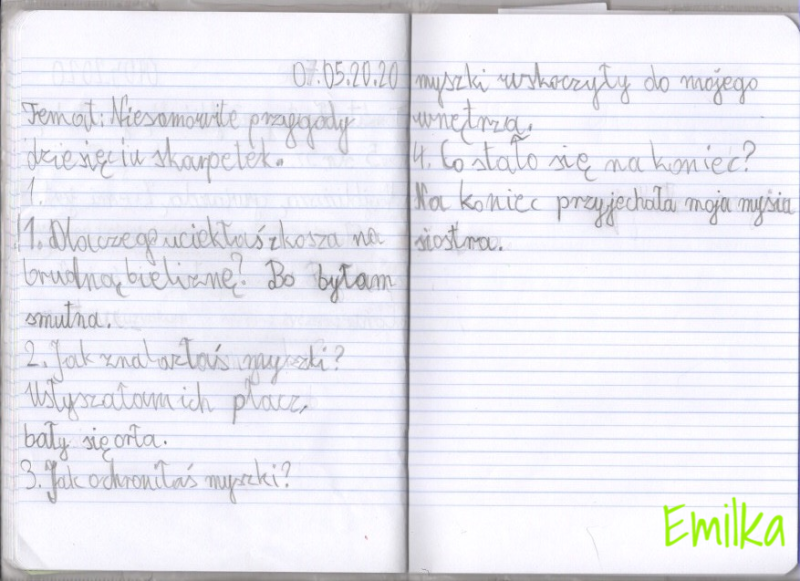 07.05.20.20
Temat: Niesamowite przygody
dziesięciu skarpetek.
1.
1. Dlaczego uciekłaś z kosza na
brudną bieliznę? Bo byłam
smutna.
2. Jak znalazłaś myszki?
Usłyszałam ich płacz,
bały się orła.
3. Jak ochroniłaś myszki?
myszki wskoczyły do mojego
wnętrza.
4. Co stało się na koniec?
Na koniec przyjechała moja mysia
siostra.
Emilka